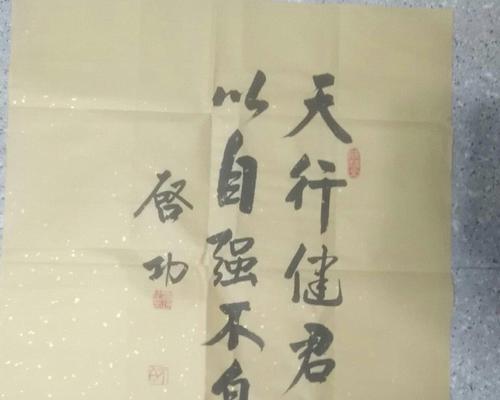 天行健君
以自强不
启功